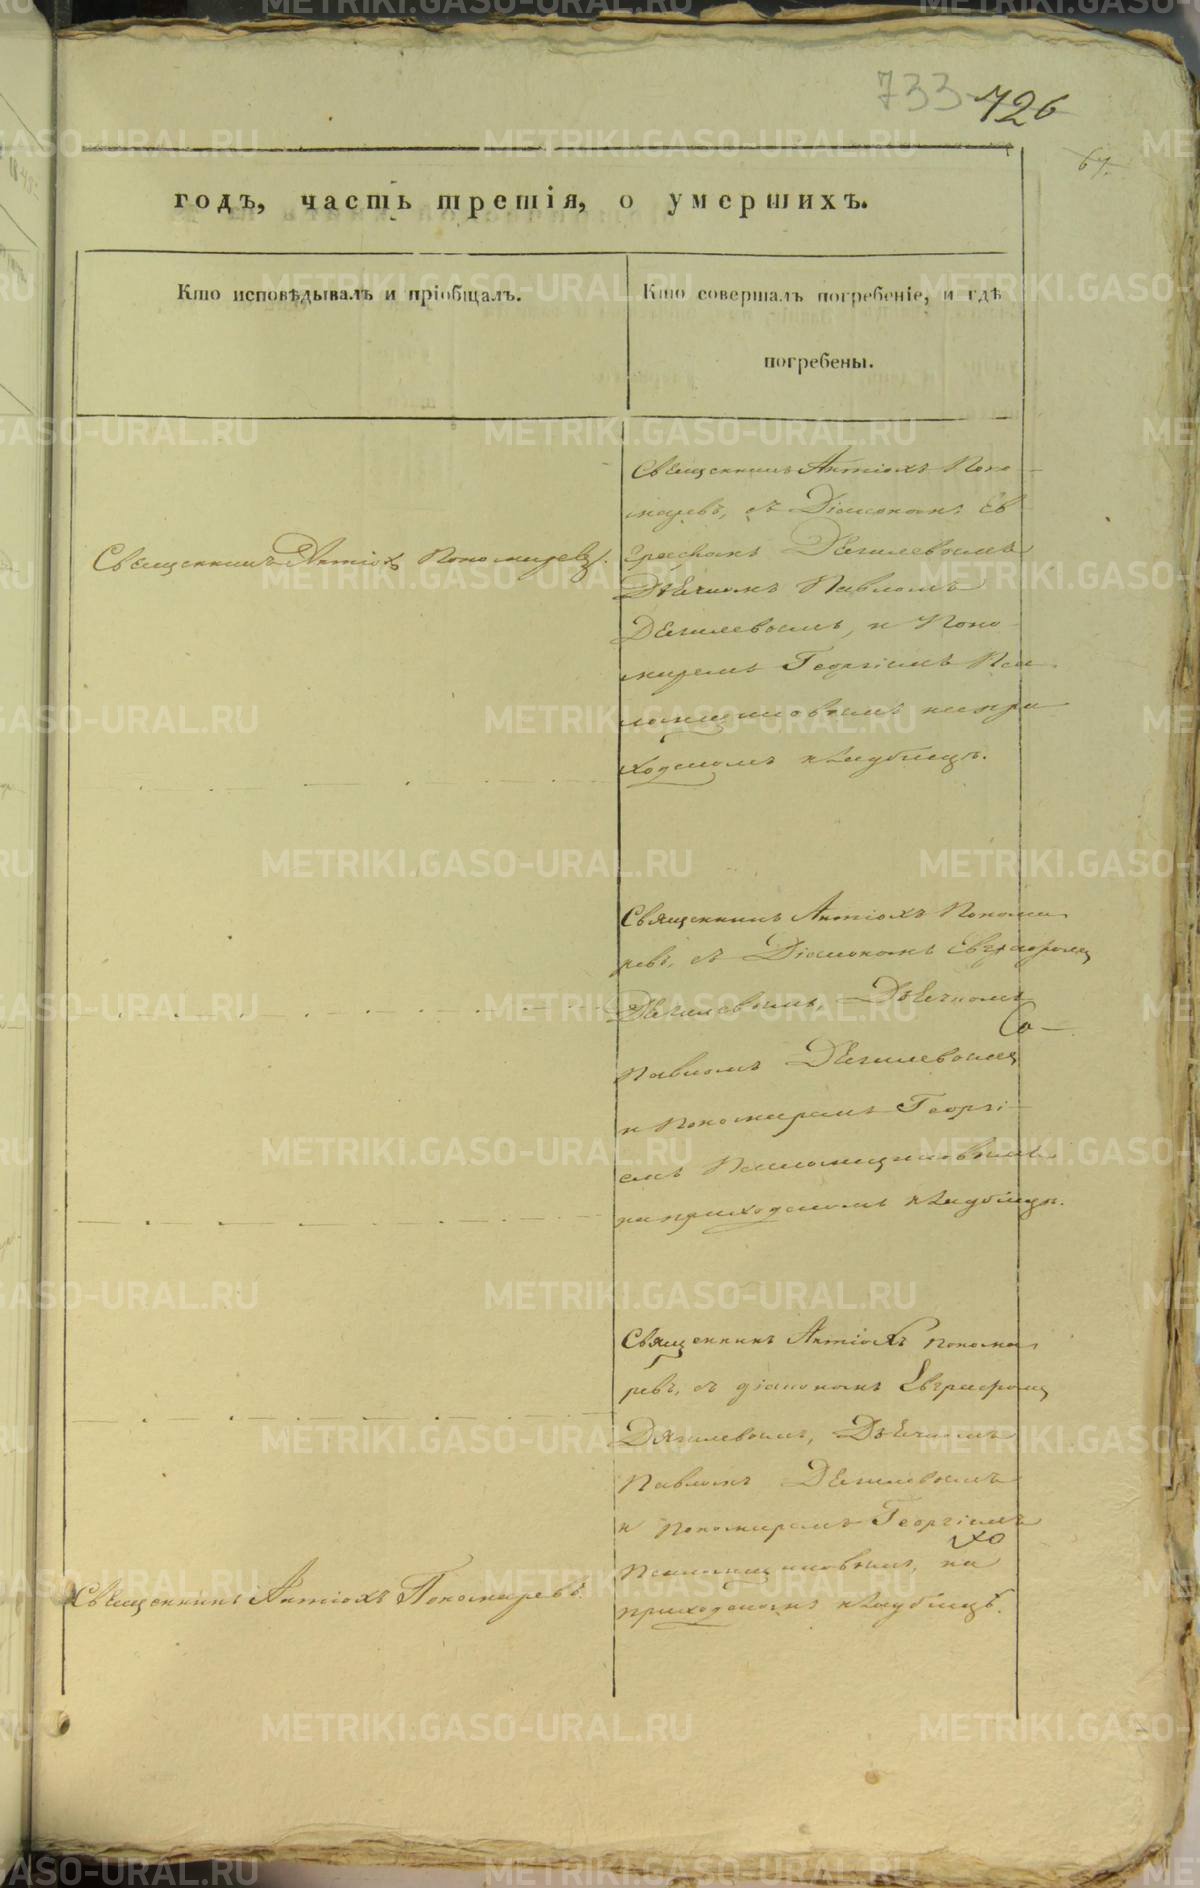 733 726
67.
годъ, часть третія, о умершихъ.
Кто исповѣдывалъ и пріобщалъ.
Кто совершалъ погребеніе, и гдѣ
погребены.
Священникъ Антіохъ Пономаревъ.
Священникъ Антіохъ Поно-
маревъ, съ Діакономъ Ев
графомъ Дягилевымъ
Дьячкомъ Павломъ
Дягилевымъ, и Поно
маремъ Георгіемъ
на при
ходскомъ кладбищѣ.
Священникъ Антіохъ Понома
ревъ, съ Діакономъ Евграфомъ
Дягилевымъ, Дьячкомъ
Павломъ Дягилевымъ
и Пономаремъ Георгі-
емъ
на приходскомъ кладбищѣ.
Священникъ Антіохъ Понома
ревъ, съ діакономъ Евграфомъ
Дягилевымъ, Дьячкомъ
Павломъ Дягилевымъ
и Пономаремъ Георгіемъ
на
приходскомъ кладбищѣ.
Священникъ Антіохъ Пономаревъ.
METRIKI.GASO-URAL.RU